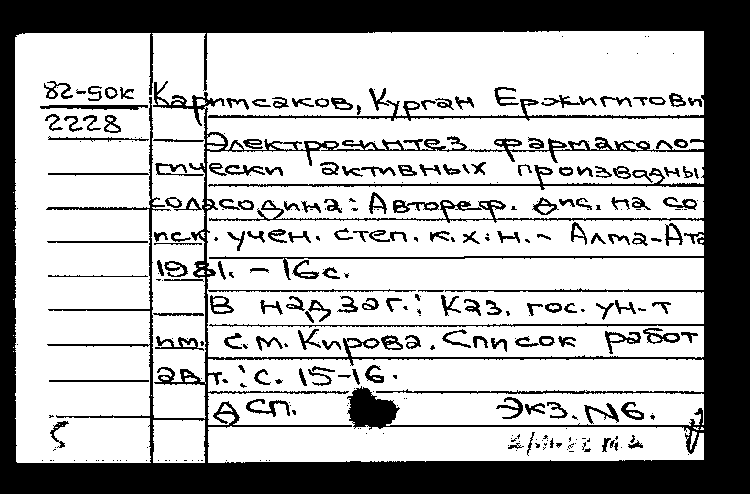 82-5ок Каримсаков, Курган Ержигитови
2228
Электросинтез фармаколо-
гически активных производны
соласодина: Автореф. дис. на со
иск. учен. степ. к.х.н. - Алма-Ата
1981. - 16с.
В надзаг.: Каз. гос. ун-т
им. С.М. Кирова. Список работ
авт.: с. 15-16.
ДСП. Экз. №6.